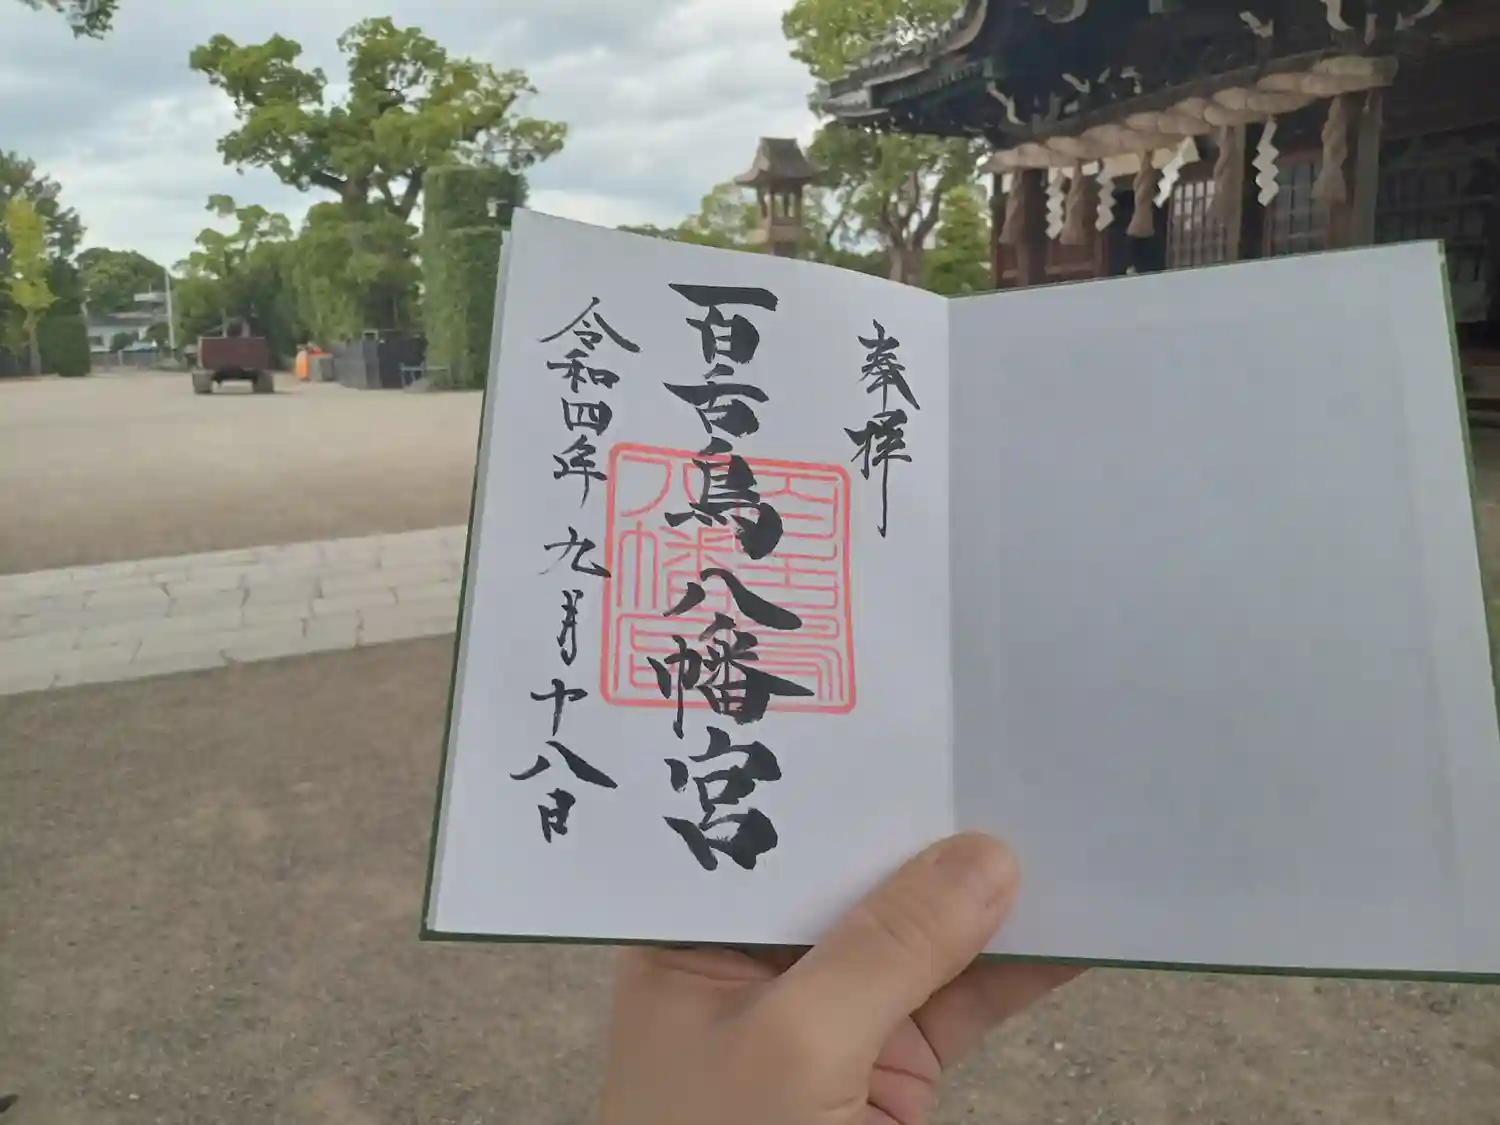 奉拝
百舌鳥八幡宮
令和四年九月十八日
百舌鳥
八幡宮